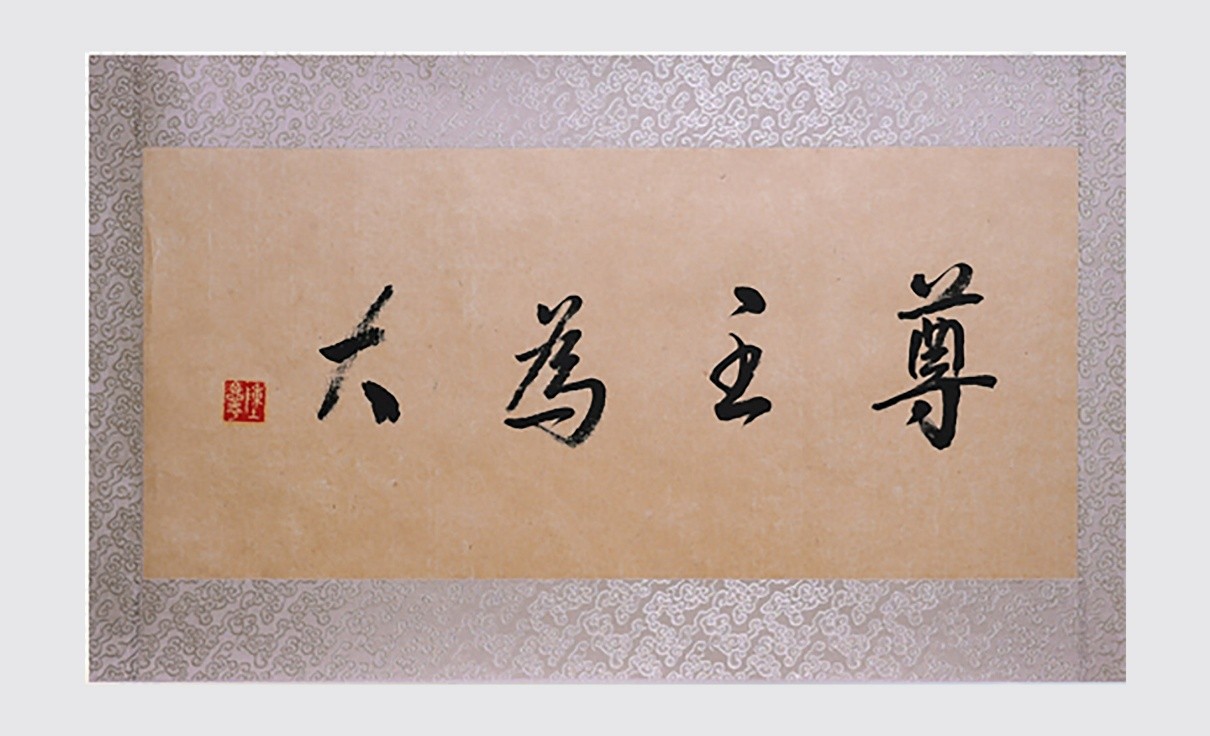 尊主為大